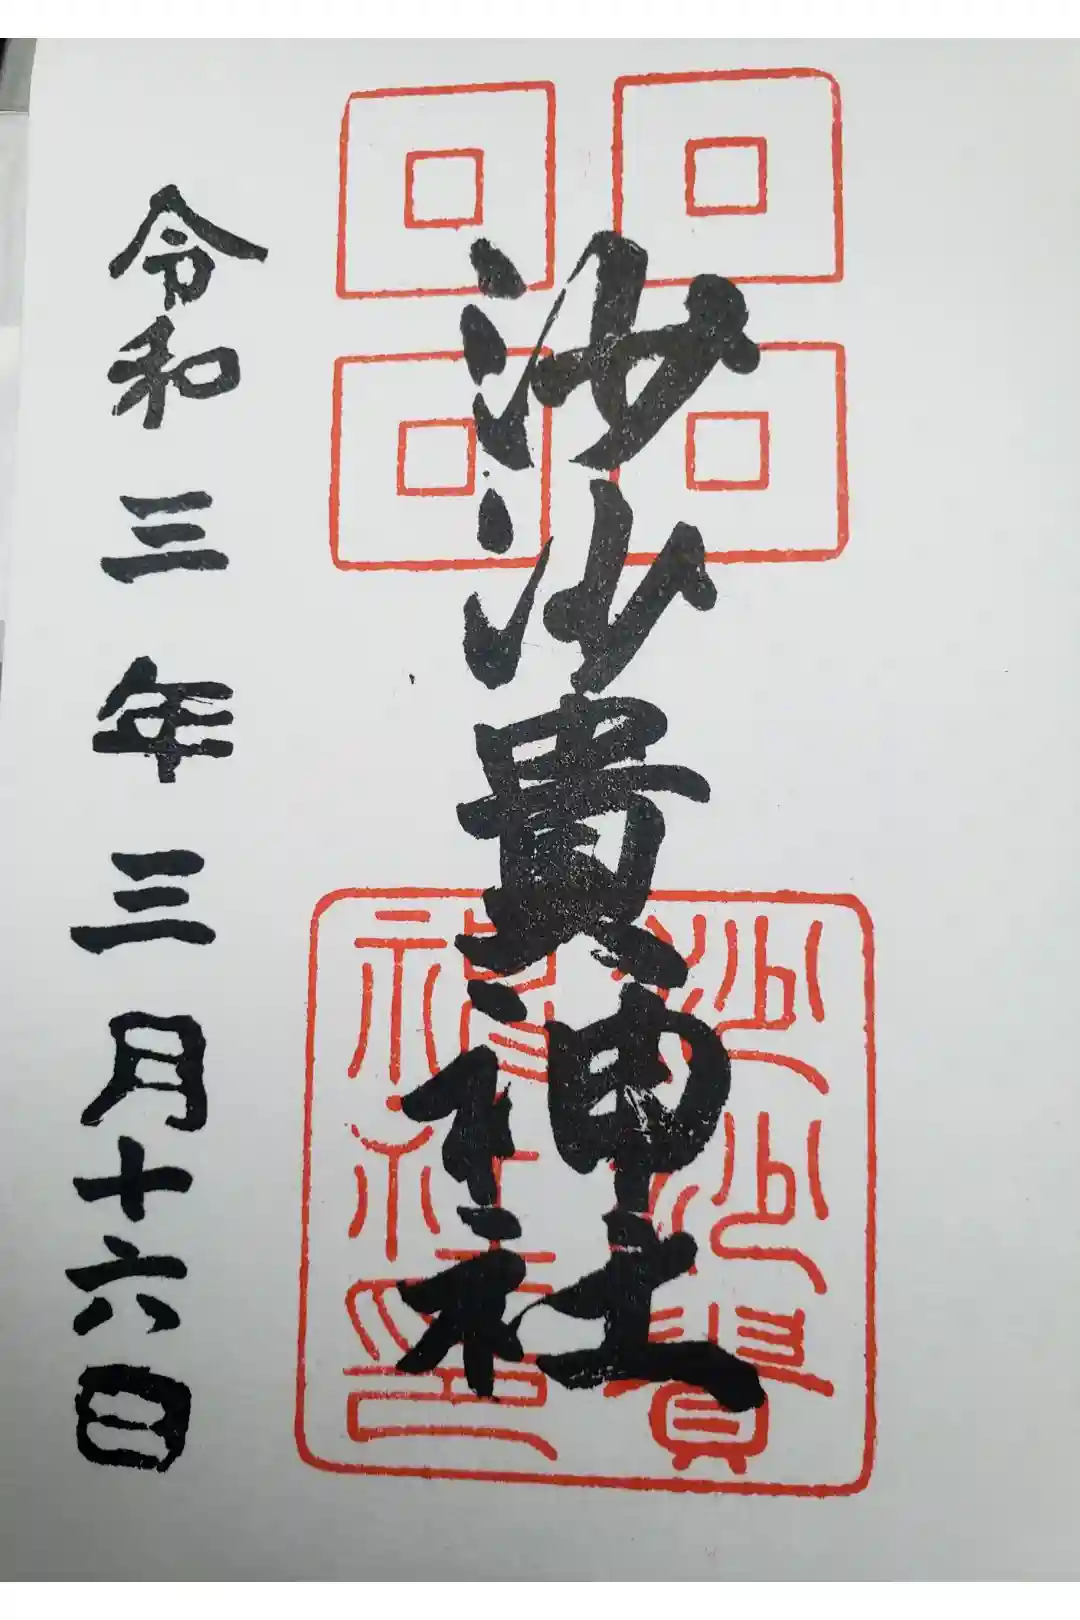 沙沙貴神社
沙沙貴
神社印
令和三年三月十六日